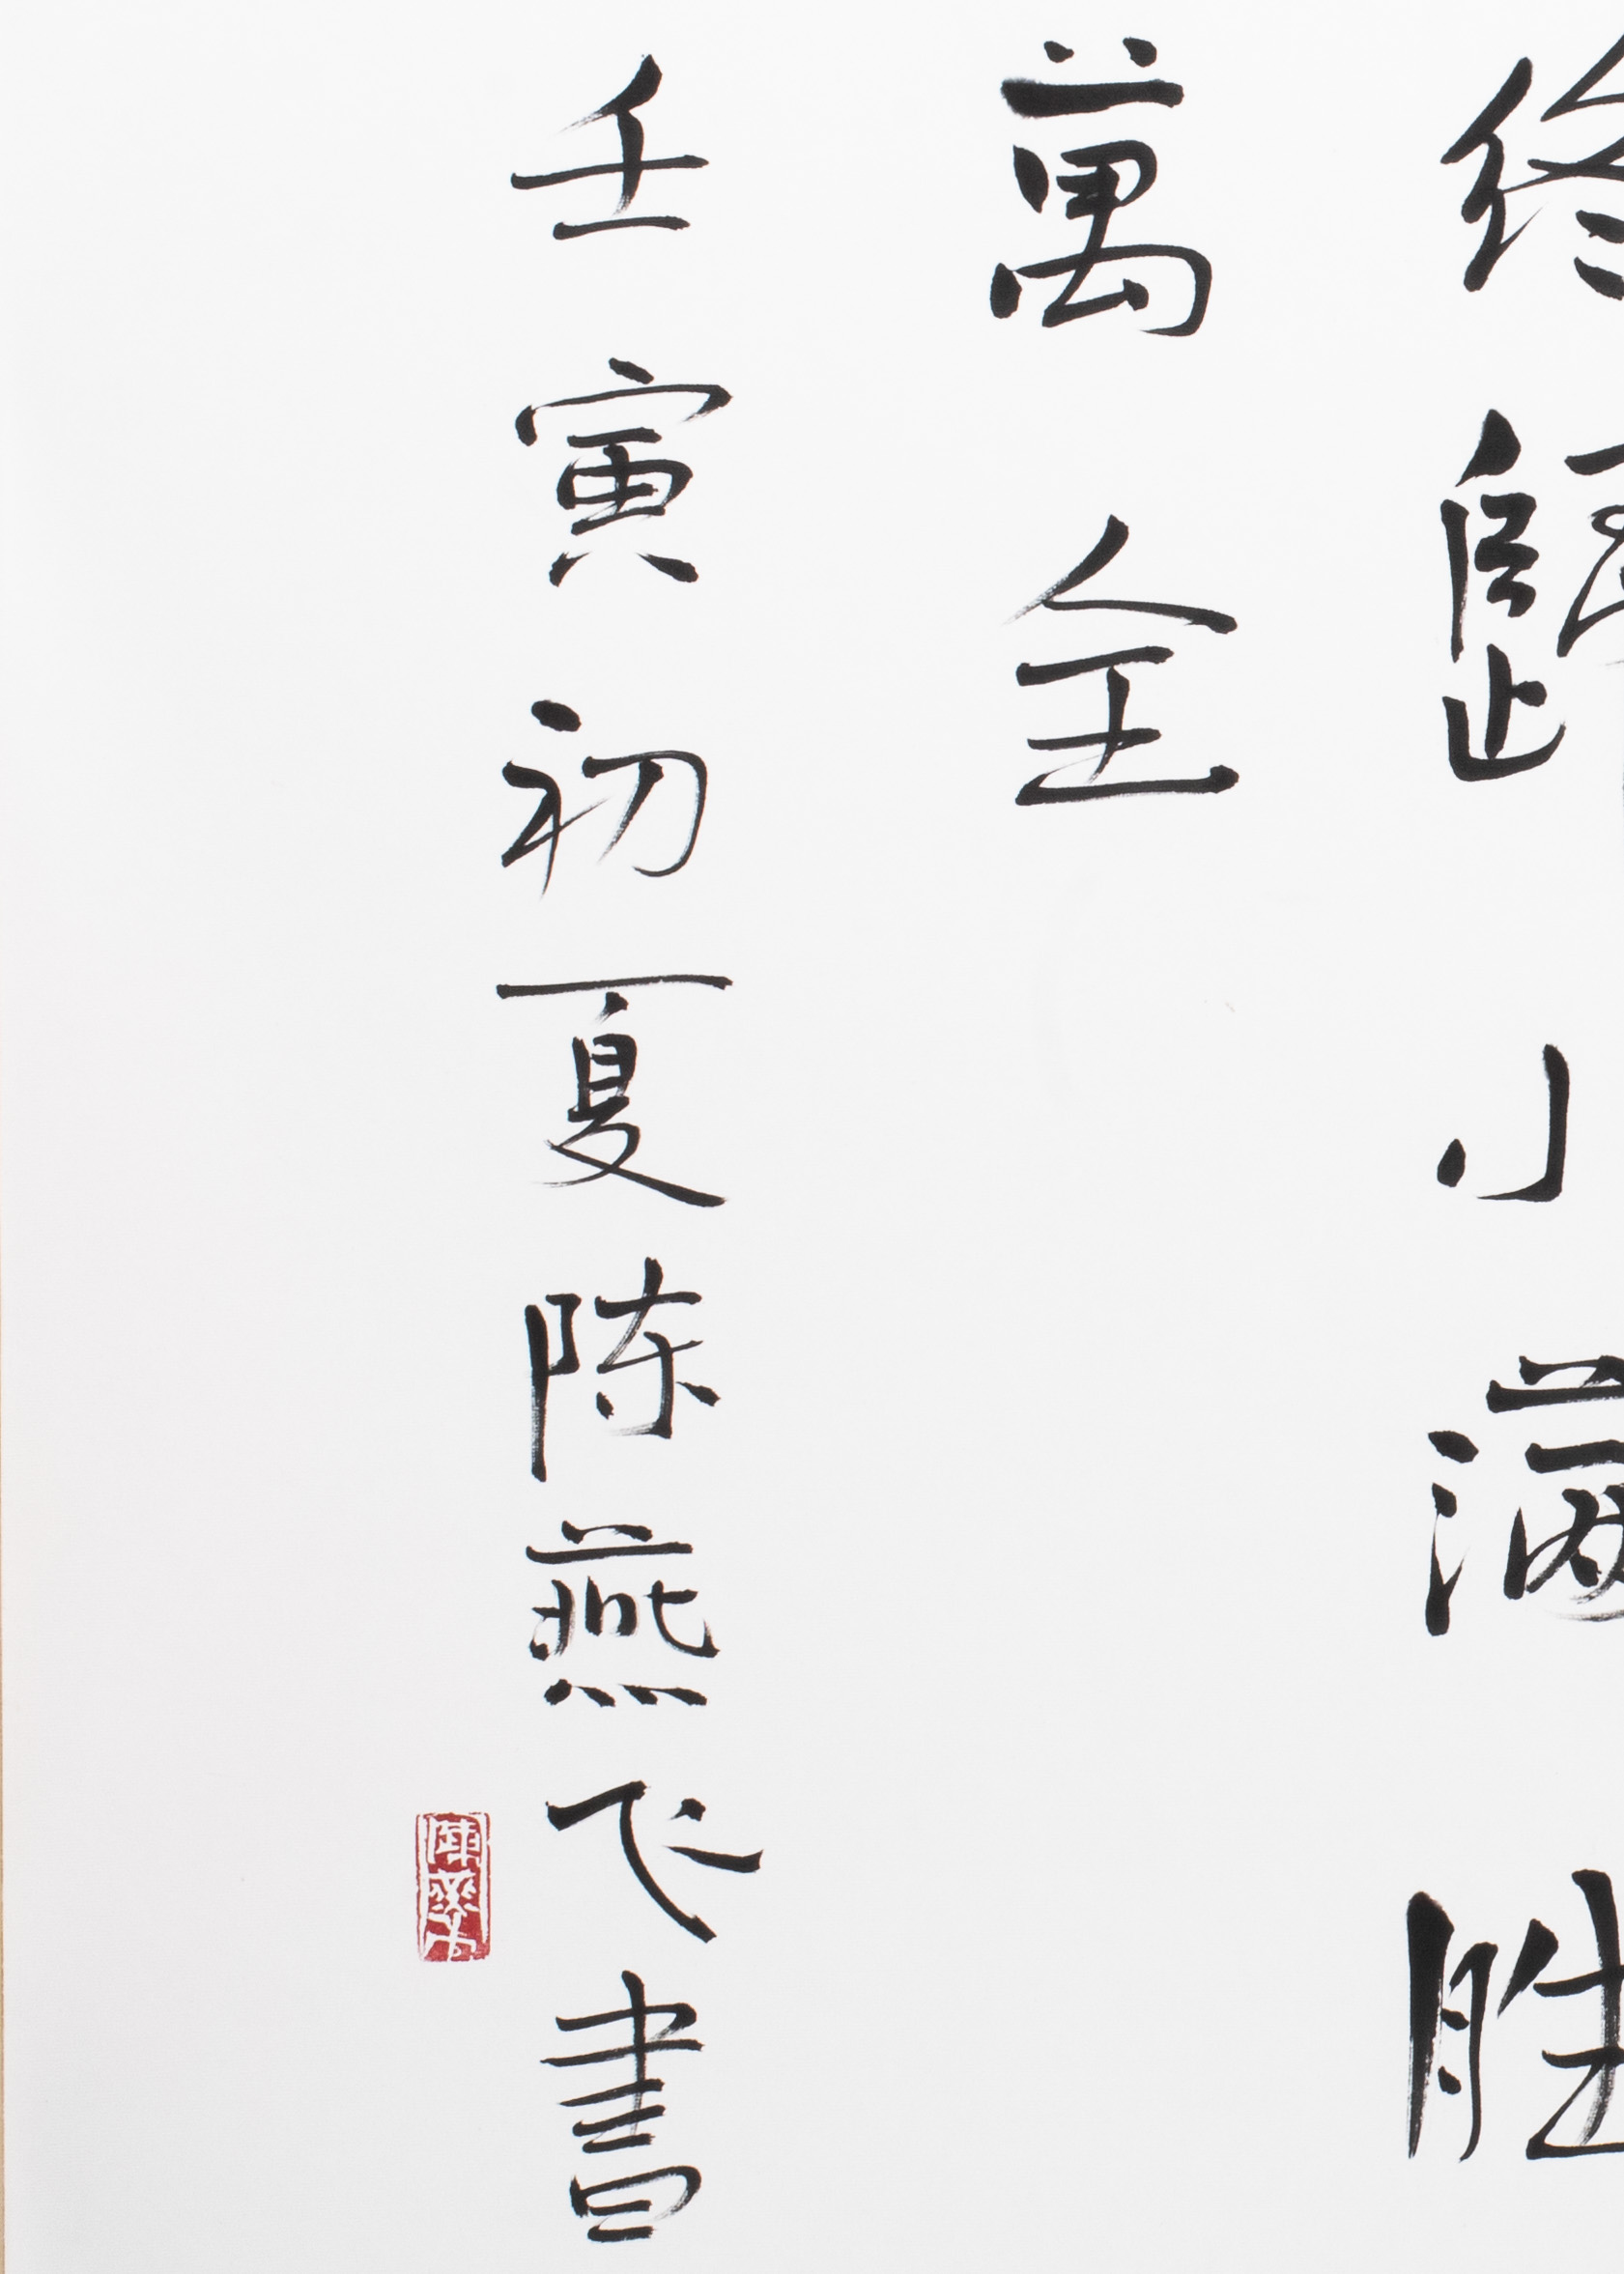 終歸小滿胜
萬全
壬寅初夏陈燕飞書